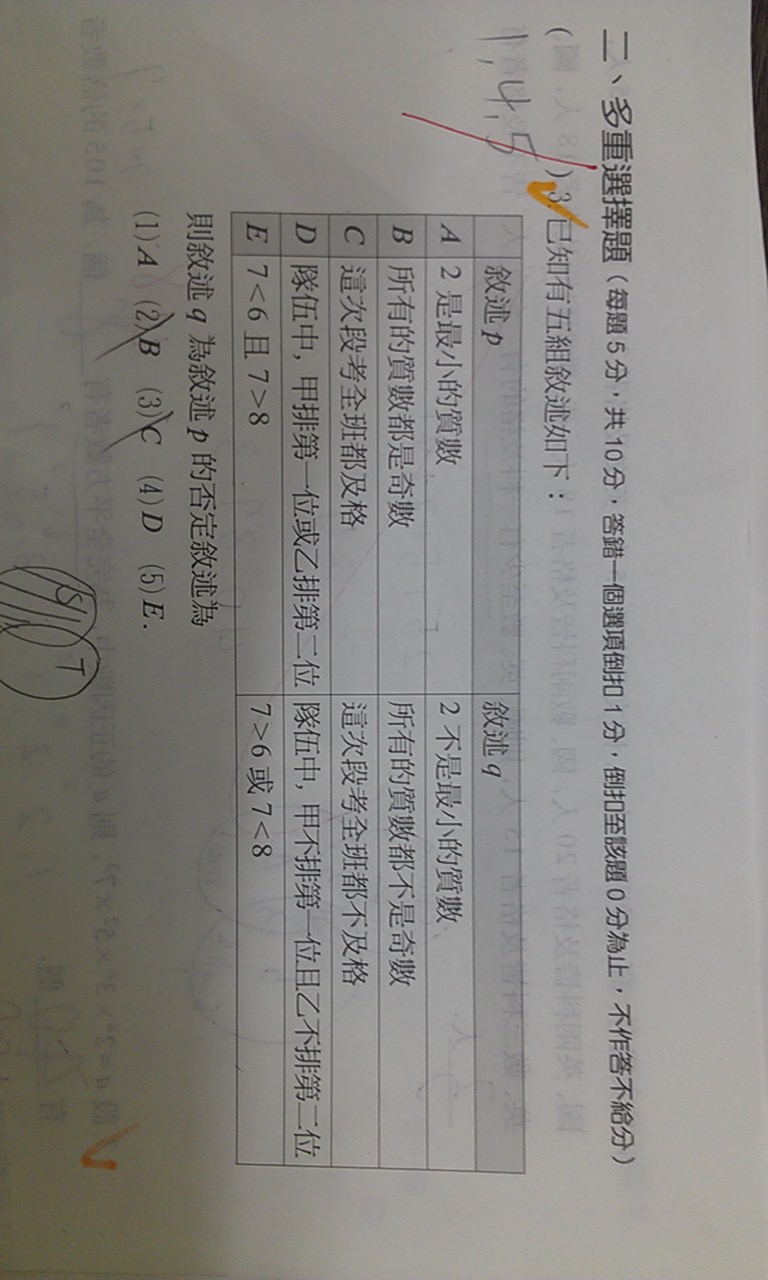 二、多重選擇題（每題 5 分，共 10 分，答錯一個選項倒扣 1 分，倒扣至該題 0 分為止，不作答不給分）
( 1,4,5 ) 3. 已知有五組敘述如下：
敘述 p 敘述 q
A 2 是最小的質數 2 不是最小的質數
B 所有的質數都是奇數 所有的質數都不是奇數
C 這次段考全班都及格 這次段考全班都不及格
D 隊伍中，甲排第一位或乙排第二位 隊伍中，甲不排第一位且乙不排第二位
E 7<6 且 7>8 7>6 或 7<8
則敘述 q 為敘述 p 的否定敘述為
(1) A (2) B (3) C (4) D (5) E.